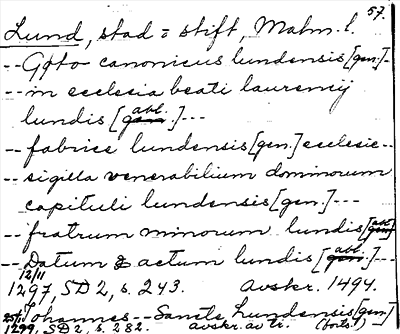 57.
Lund, stad o stift, Malm. l.
-- Goto canonicus lundensis [gen.] --
-- in ecclesia beati laurencij
lundis [abl.] ---
-- fabrice lundensis [gen.] ecclesie --
-- sigilla venerabilium dominorum
capituli lundensis [gen.] ---
-- fratrum minorum lundis [abl.]
-- Datum & actum lundis [abl.] ---
12/11 1297, SD 2, s. 243. Avskr. 1494.
Johannes -- Sancte Lundensis [gen.]
25/1 1299, SD 2, s. 282. avskr. av ti. (forts.!)